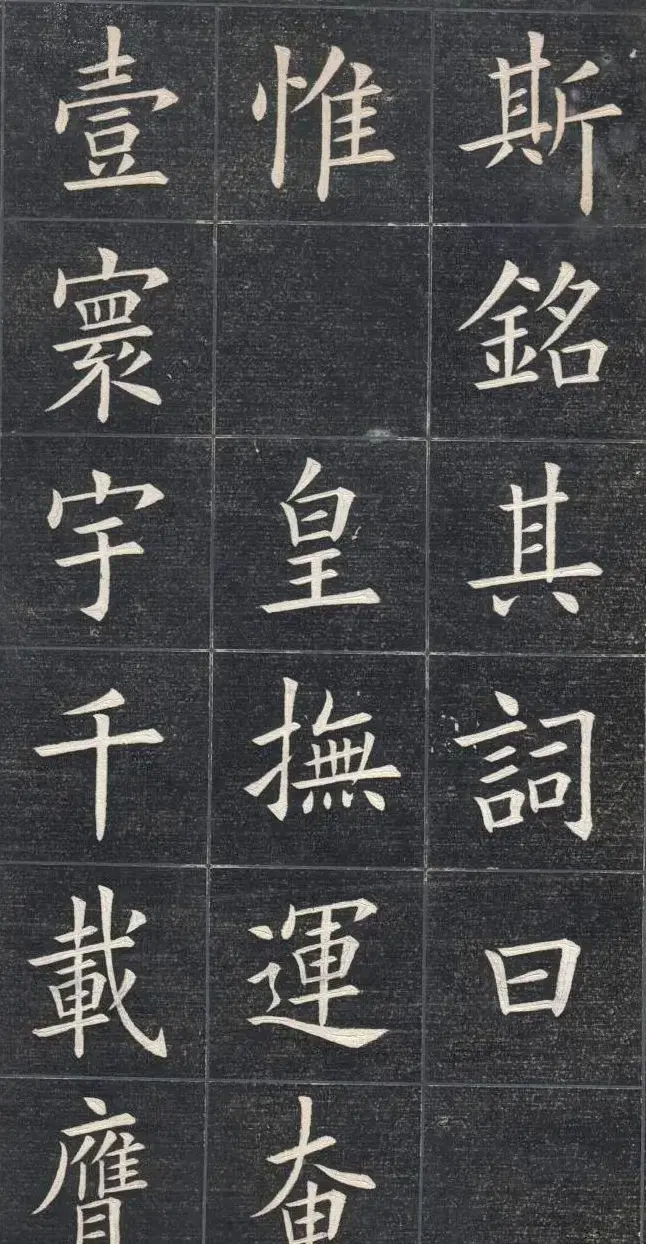 斯銘其詞曰
惟皇撫運奄
壹寰宇千載膺